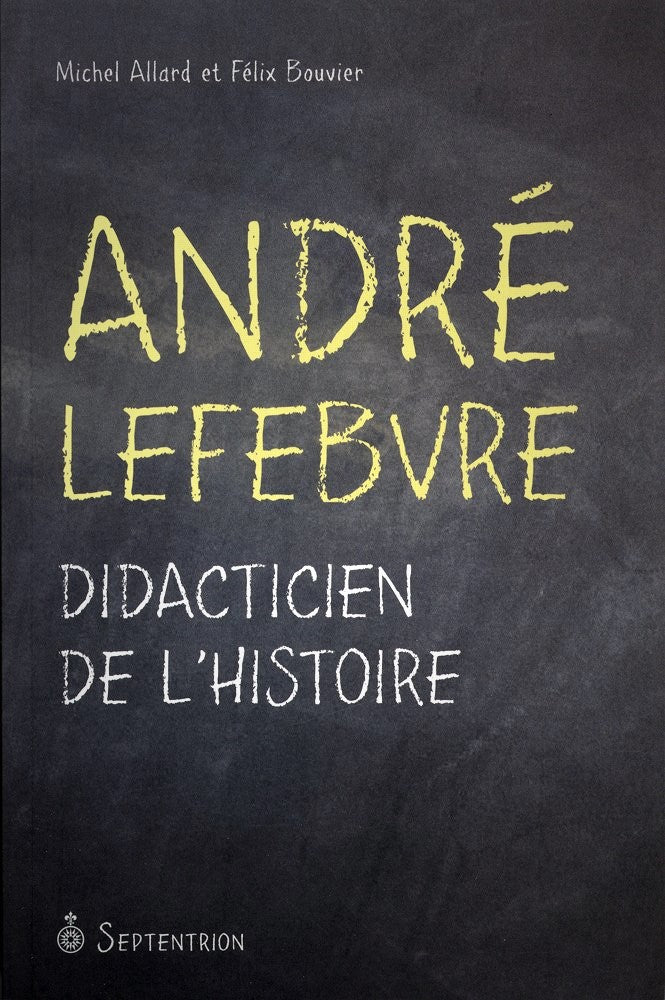 Michel Allard et Félix Bouvier
ANDRÉ
LEFEBVRE
DIDACTICIEN
DE L'HISTOIRE
SEPTENTRION